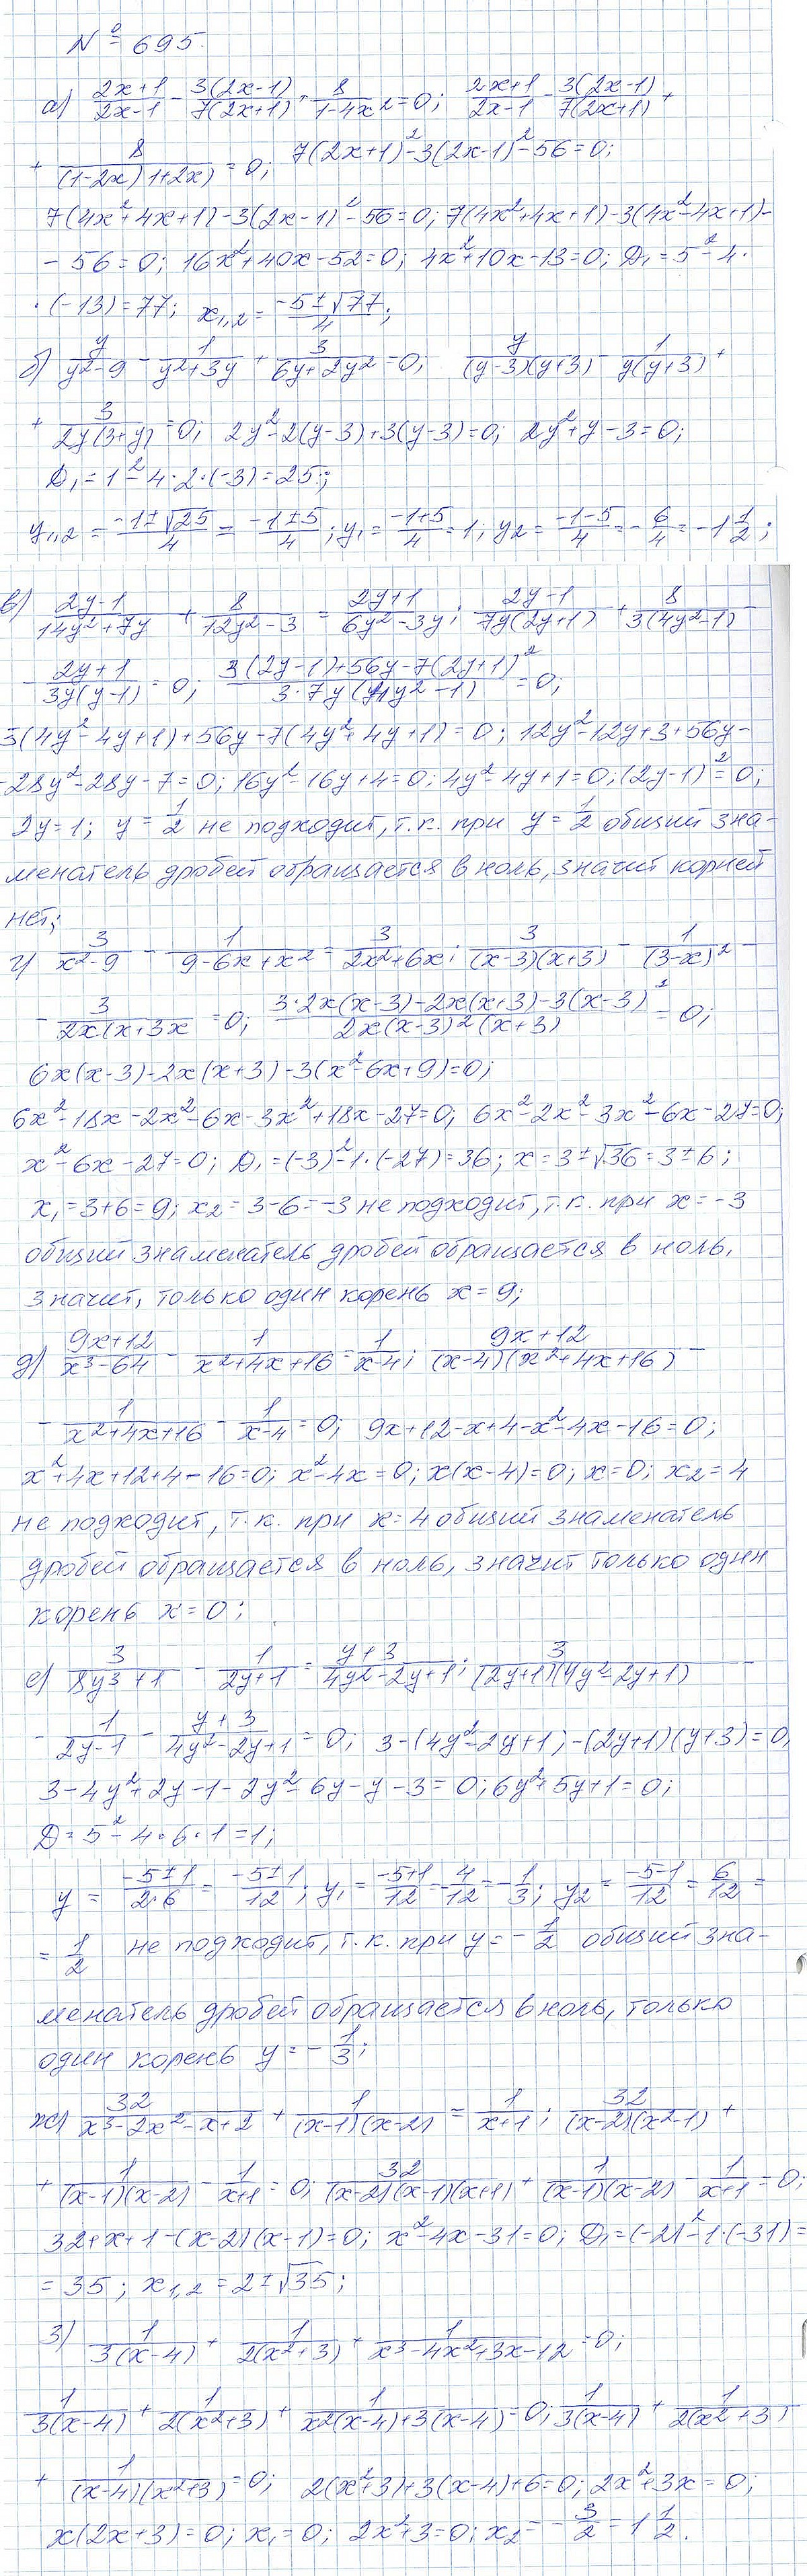 № 695.
а) (2x+1)/(2x-1) - 3(2x-1)/(7(2x+1)) + 8/(1-4x²) = 0; (2x+1)/(2x-1) - 3(2x-1)/(7(2x+1)) +
+ 8/((1-2x)(1+2x)) = 0; 7(2x+1)²-3(2x-1)²-56=0;
7(4x²+4x+1)-3(2x-1)²-56=0; 7(4x²+4x+1)-3(4x²-4x+1)-
-56=0; 16x²+40x-52=0; 4x²+10x-13=0; D₁=5²-4·
·(-13)=77; x₁,₂ = (-5±√77)/4;
б) y/(y²-9) - 1/(y²+3y) + 3/(6y+2y²) = 0; y/((y-3)(y+3)) - 1/(y(y+3)) +
+ 3/(2y(3+y)) = 0; 2y²-2(y-3)+3(y-3)=0; 2y²+y-3=0;
D₁=1²-4·2·(-3)=25;
y₁,₂ = (-1±√25)/4 = (-1±5)/4; y₁ = (-1+5)/4 = 1; y₂ = (-1-5)/4 = -6/4 = -1 1/2;
в) (2y-1)/(14y²+7y) + 8/(12y²-3) = (2y+1)/(6y²-3y); (2y-1)/(7y(2y+1)) + 8/(3(4y²-1)) -
- (2y+1)/(3y(y-1)) = 0; (3(2y-1)+56y-7(2y+1)²)/(3·7y(4y²-1)) = 0;
3(4y²-4y+1)+56y-7(4y²+4y+1)=0; 12y²-12y+3+56y-
-28y²-28y-7=0; 16y²-16y+4=0; 4y²-4y+1=0; (2y-1)²=0;
2y=1; y = 1/2 не подходит, т.к. при y = 1/2 общий зна-
менатель дробей обращается в ноль, значит корней
нет;
г) 3/(x²-9) - 1/(9-6x+x²) = 3/(2x²+6x); 3/((x-3)(x+3)) - 1/(3-x)² -
- 3/(2x(x+3x = 0; (3·2x(x-3)-2x(x+3)-3(x-3)²)/(2x(x-3)²(x+3)) = 0;
6x(x-3)-2x(x+3)-3(x²-6x+9)=0;
6x²-18x-2x²-6x-3x²+18x-27=0; 6x²-2x²-3x²-6x-27=0;
x²-6x-27=0; D₁=(-3)²-1·(-27)=36; x=3±√36=3±6;
x₁=3+6=9; x₂=3-6=-3 не подходит, т.к. при x=-3
общий знаменатель дробей обращается в ноль,
значит, только один корень x=9;
д) (9x+12)/(x³-64) - 1/(x²+4x+16) = 1/(x-4); (9x+12)/((x-4)(x²+4x+16)) -
- 1/(x²+4x+16) - 1/(x-4) = 0; 9x+12-x+4-x²-4x-16=0;
x²+4x+12+4-16=0; x²-4x=0; x(x-4)=0; x=0; x₂=4
не подходит, т.к. при x=4 общий знаменатель
дробей обращается в ноль, значит только один
корень x=0;
е) 3/(8y³+1) - 1/(2y+1) = (y+3)/(4y²-2y+1); 3/((2y+1)(4y²-2y+1)) -
- 1/(2y-1) - (y+3)/(4y²-2y+1) = 0; 3-(4y²-2y+1)-(2y+1)(y+3)=0,
3-4y²+2y-1-2y²-6y-y-3=0; 6y²+5y+1=0;
D=5²-4·6·1=1;
y = (-5±1)/(2·6) = (-5±1)/12; y₁ = (-5+1)/12 = -4/12 = -1/3; y₂ = (-5-1)/12 = 6/12 =
= 1/2 не подходит, т.к. при y = -1/2 общий зна-
менатель дробей обращается в ноль, только
один корень y = -1/3;
ж) 32/(x³-2x²-x+2) + 1/((x-1)(x-2)) = 1/(x+1); 32/((x-2)(x²-1)) +
+ 1/((x-1)(x-2)) - 1/(x+1) = 0; 32/((x-2)(x-1)(x+1)) + 1/((x-1)(x-2)) - 1/(x+1) = 0;
32+x+1-(x-2)(x-1)=0; x²-4x-31=0; D₁=(-2)²-1·(-31)=
=35; x₁,₂=2±√35;
з) 1/(3(x-4)) + 1/(2(x²+3)) + 1/(x³-4x²+3x-12) = 0;
1/(3(x-4)) + 1/(2(x²+3)) + 1/(x²(x-4)+3(x-4)) = 0; 1/(3(x-4)) + 1/(2(x²+3))
+ 1/((x-4)(x²+3)) = 0; 2(x²+3)+3(x-4)+6=0; 2x²+3x=0;
x(2x+3)=0; x₁=0; 2x²+3=0; x₂ = -3/2 = 1 1/2.